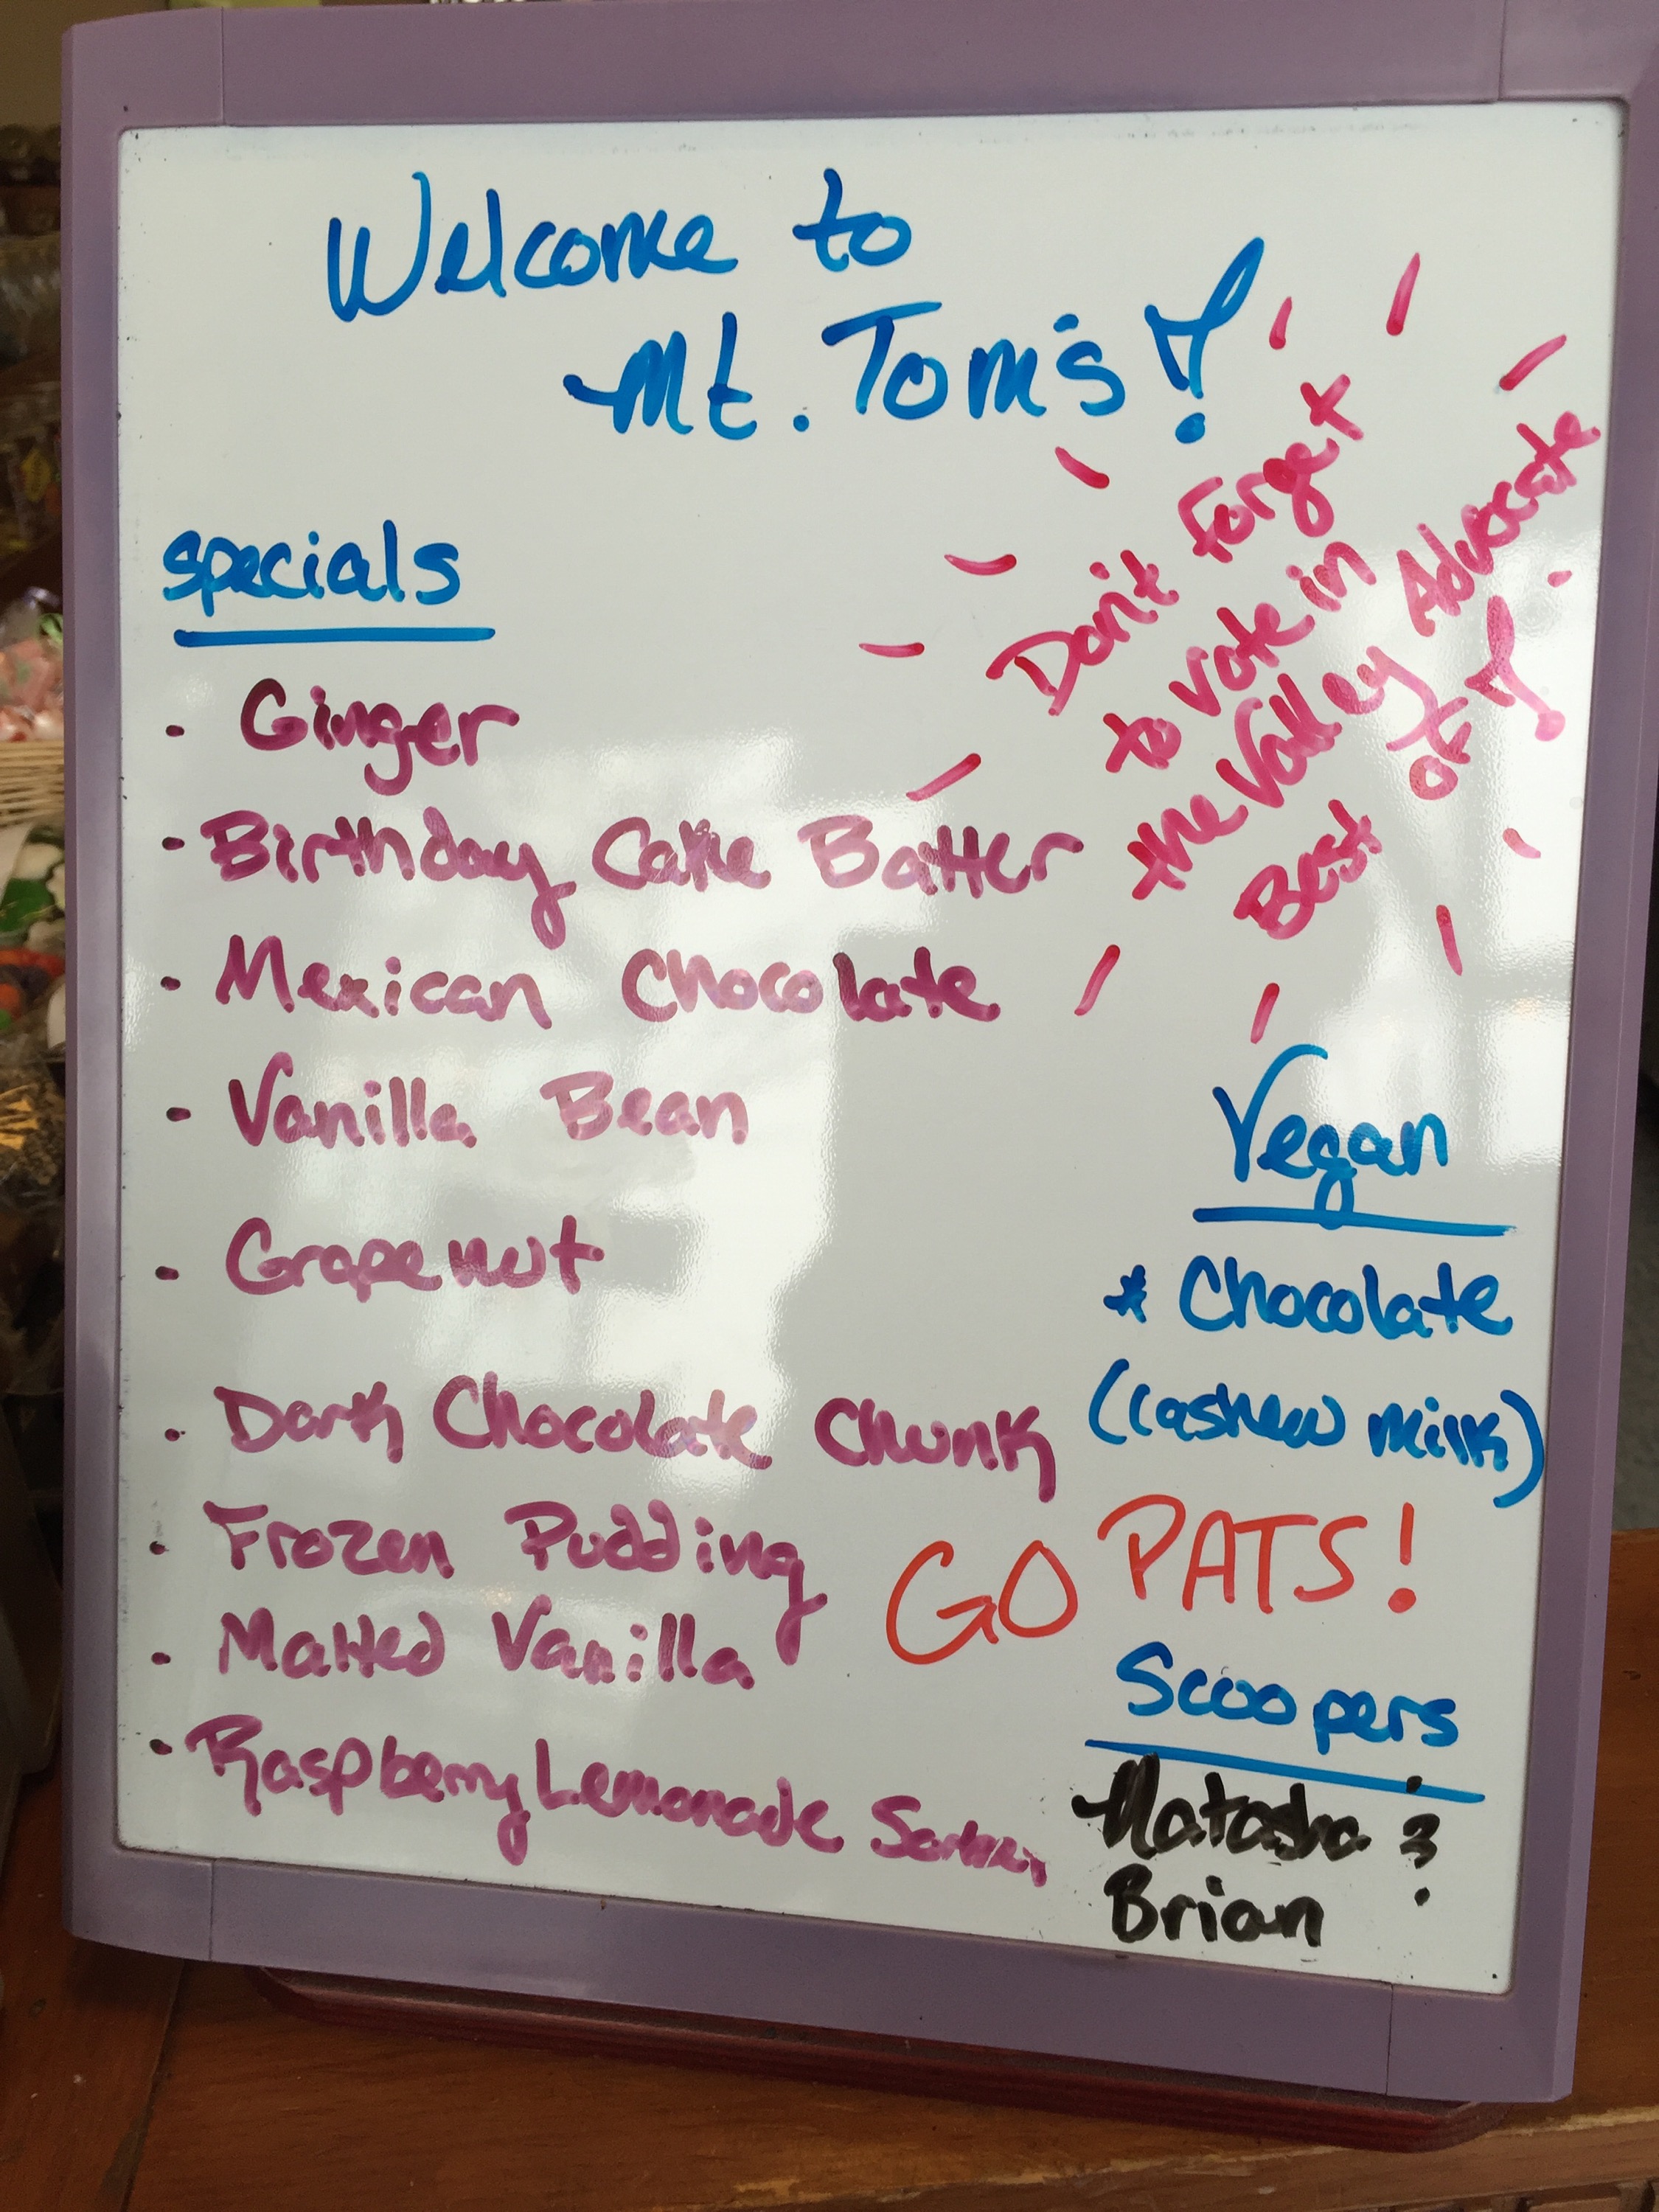 Welcome to
Mt. Tom's!
Don't forget
to vote in
the Valley Advocate
Best of!
specials
- Ginger
- Birthday Cake Batter
- Mexican Chocolate
- Vanilla Bean
- Grapenut
- Dark Chocolate Chunk
- Frozen Pudding
- Malted Vanilla
- Raspberry Lemonade
Vegan
* Chocolate
(cashew milk)
GO PATS!
Scoopers
Natasha &
Brian